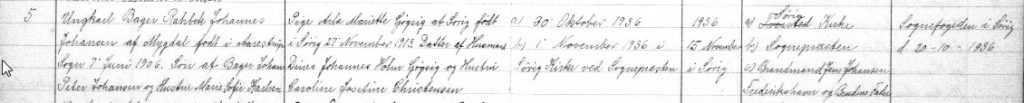 5
Ungkarl Bager Rahbek Johannes
Johansen af Mygdal født i
Sogn 7 Juni 1906. Søn af Bager Johan
Peter Johansen og Hustru Marie Sofie Karlsen
Pige Arla Mariette Gøgsig af Sørig født
i Sørig 27 November 1913. Datter af Husmand
Johannes Holm Gøgsig og Hustru
Caroline Josefine Christensen
a) 30 Oktober 1936
b) 1 November 1936 i
Sørig Kirke ved Sognepræsten
1936
15 November
i Sørig
Sørig
a) Kirke
b) Sognepræsten
c) Brandmand Jens Johansen
Frederikshavn og Brudens Fader
Sognefogeden i Sørig
d. 20-10-1936